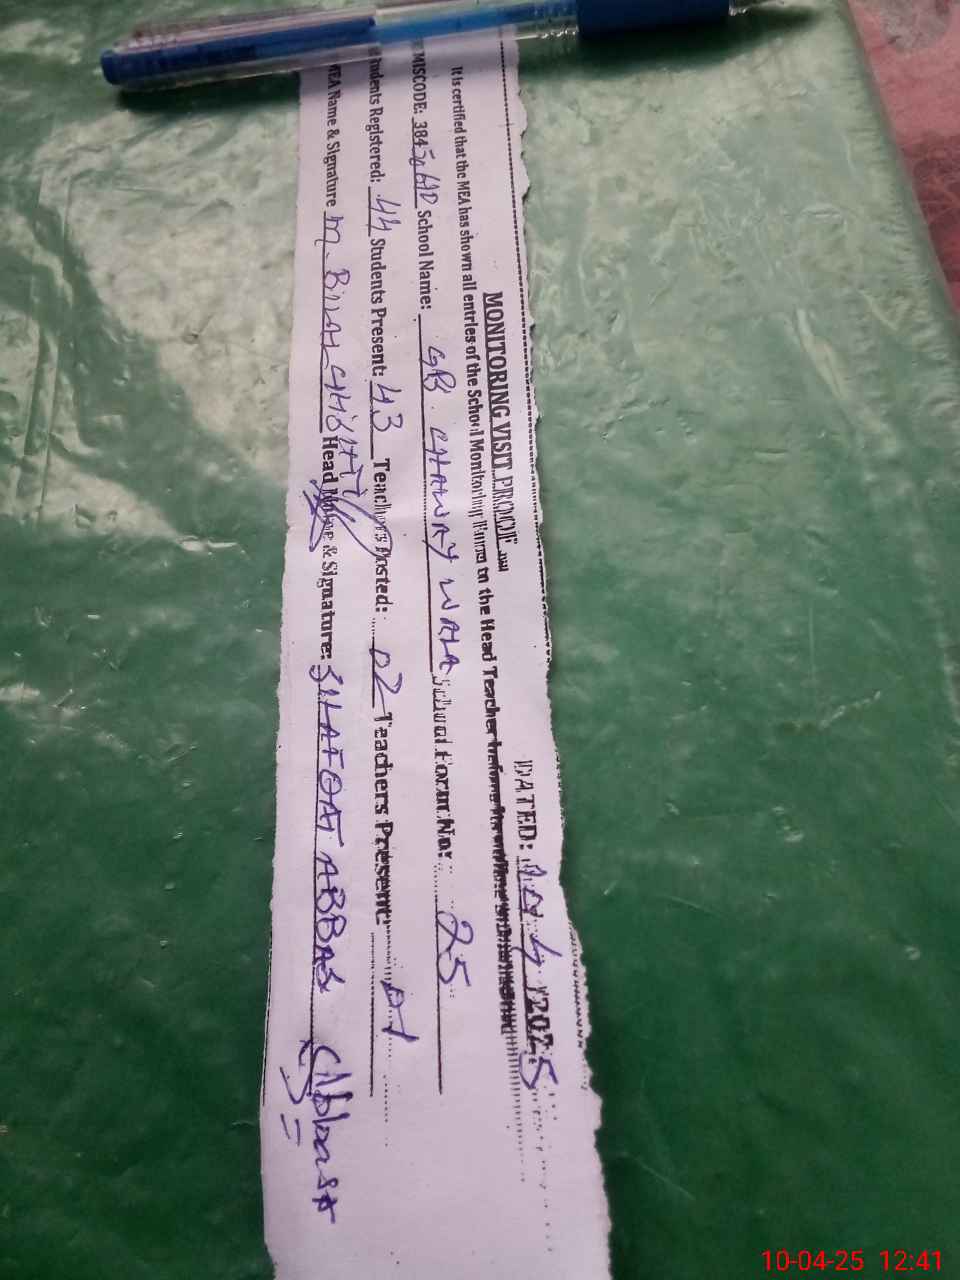 MONITORING VISIT PROOF
DATED: 10 4 /2025
It is certified that the MEA has shown all entries of the School Monitoring Form to the Head Teacher
MISCODE: 384 School Name: GB. CHAWAY WALA School Format No: 25
tudents Registered: 44 Students Present: 43 Teachers Posted: 02 Teachers Present: 01
MEA Name & Signature M. BILAL CHISHTI Head Name & Signature: ABBAS
10-04-25 12:41